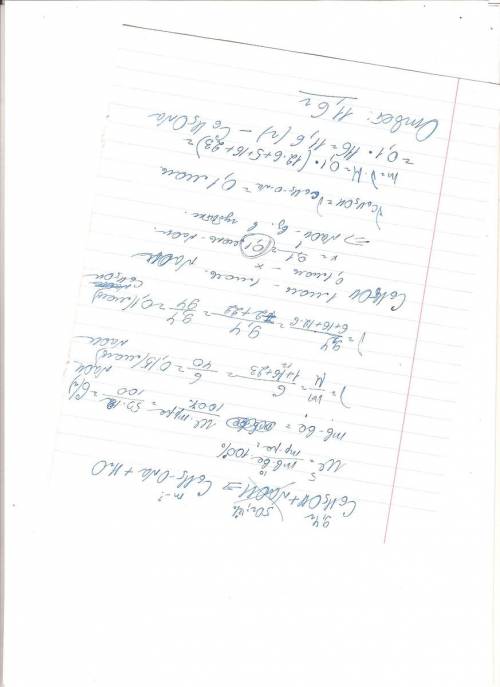 9,4г 50г, 12% m-?
C6H5OH + NaOH → C6H5-ONa + H2O
W = mв-ва · 100% / mр-ра
mв-ва = W · mр-ра / 100% = 50 · 12 / 100 = 6(г)
ν = m / M = 6 / 1+16+23 = 6 / 40 = 0,15(моль)
NaOH
ν = 9,4 / 6+16+12·6 = 9,4 / 94 = 0,1(моль)
C6H5OH
C6H5OH 1 моль – 1 моль NaOH
0,1 моль – x
x = 0,1 моль NaOH
⇒ NaOH – в избытке.
νC6H5OH = νC6H5-ONa = 0,1 моль
m = ν·M = 0,1 · (12·6+5+16+23) =
= 0,1 · 116 = 11,6 (г) – C6H5ONa
Ответ: 11,6 г